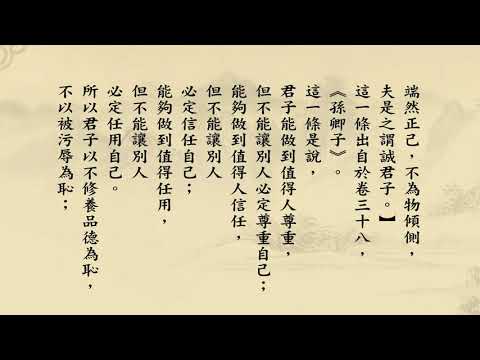 端然正己，不為物傾側，
夫是之謂誠君子。】
這一條出自於卷三十八，
《孫卿子》。
這一條是說，
君子能做到值得人尊重，
但不能讓別人必定尊重自己；
能夠做到值得人信任，
但不能讓別人
必定信任自己；
能夠做到值得任用，
但不能讓別人
必定任用自己。
所以君子以不修養品德為恥，
不以被污辱為恥；